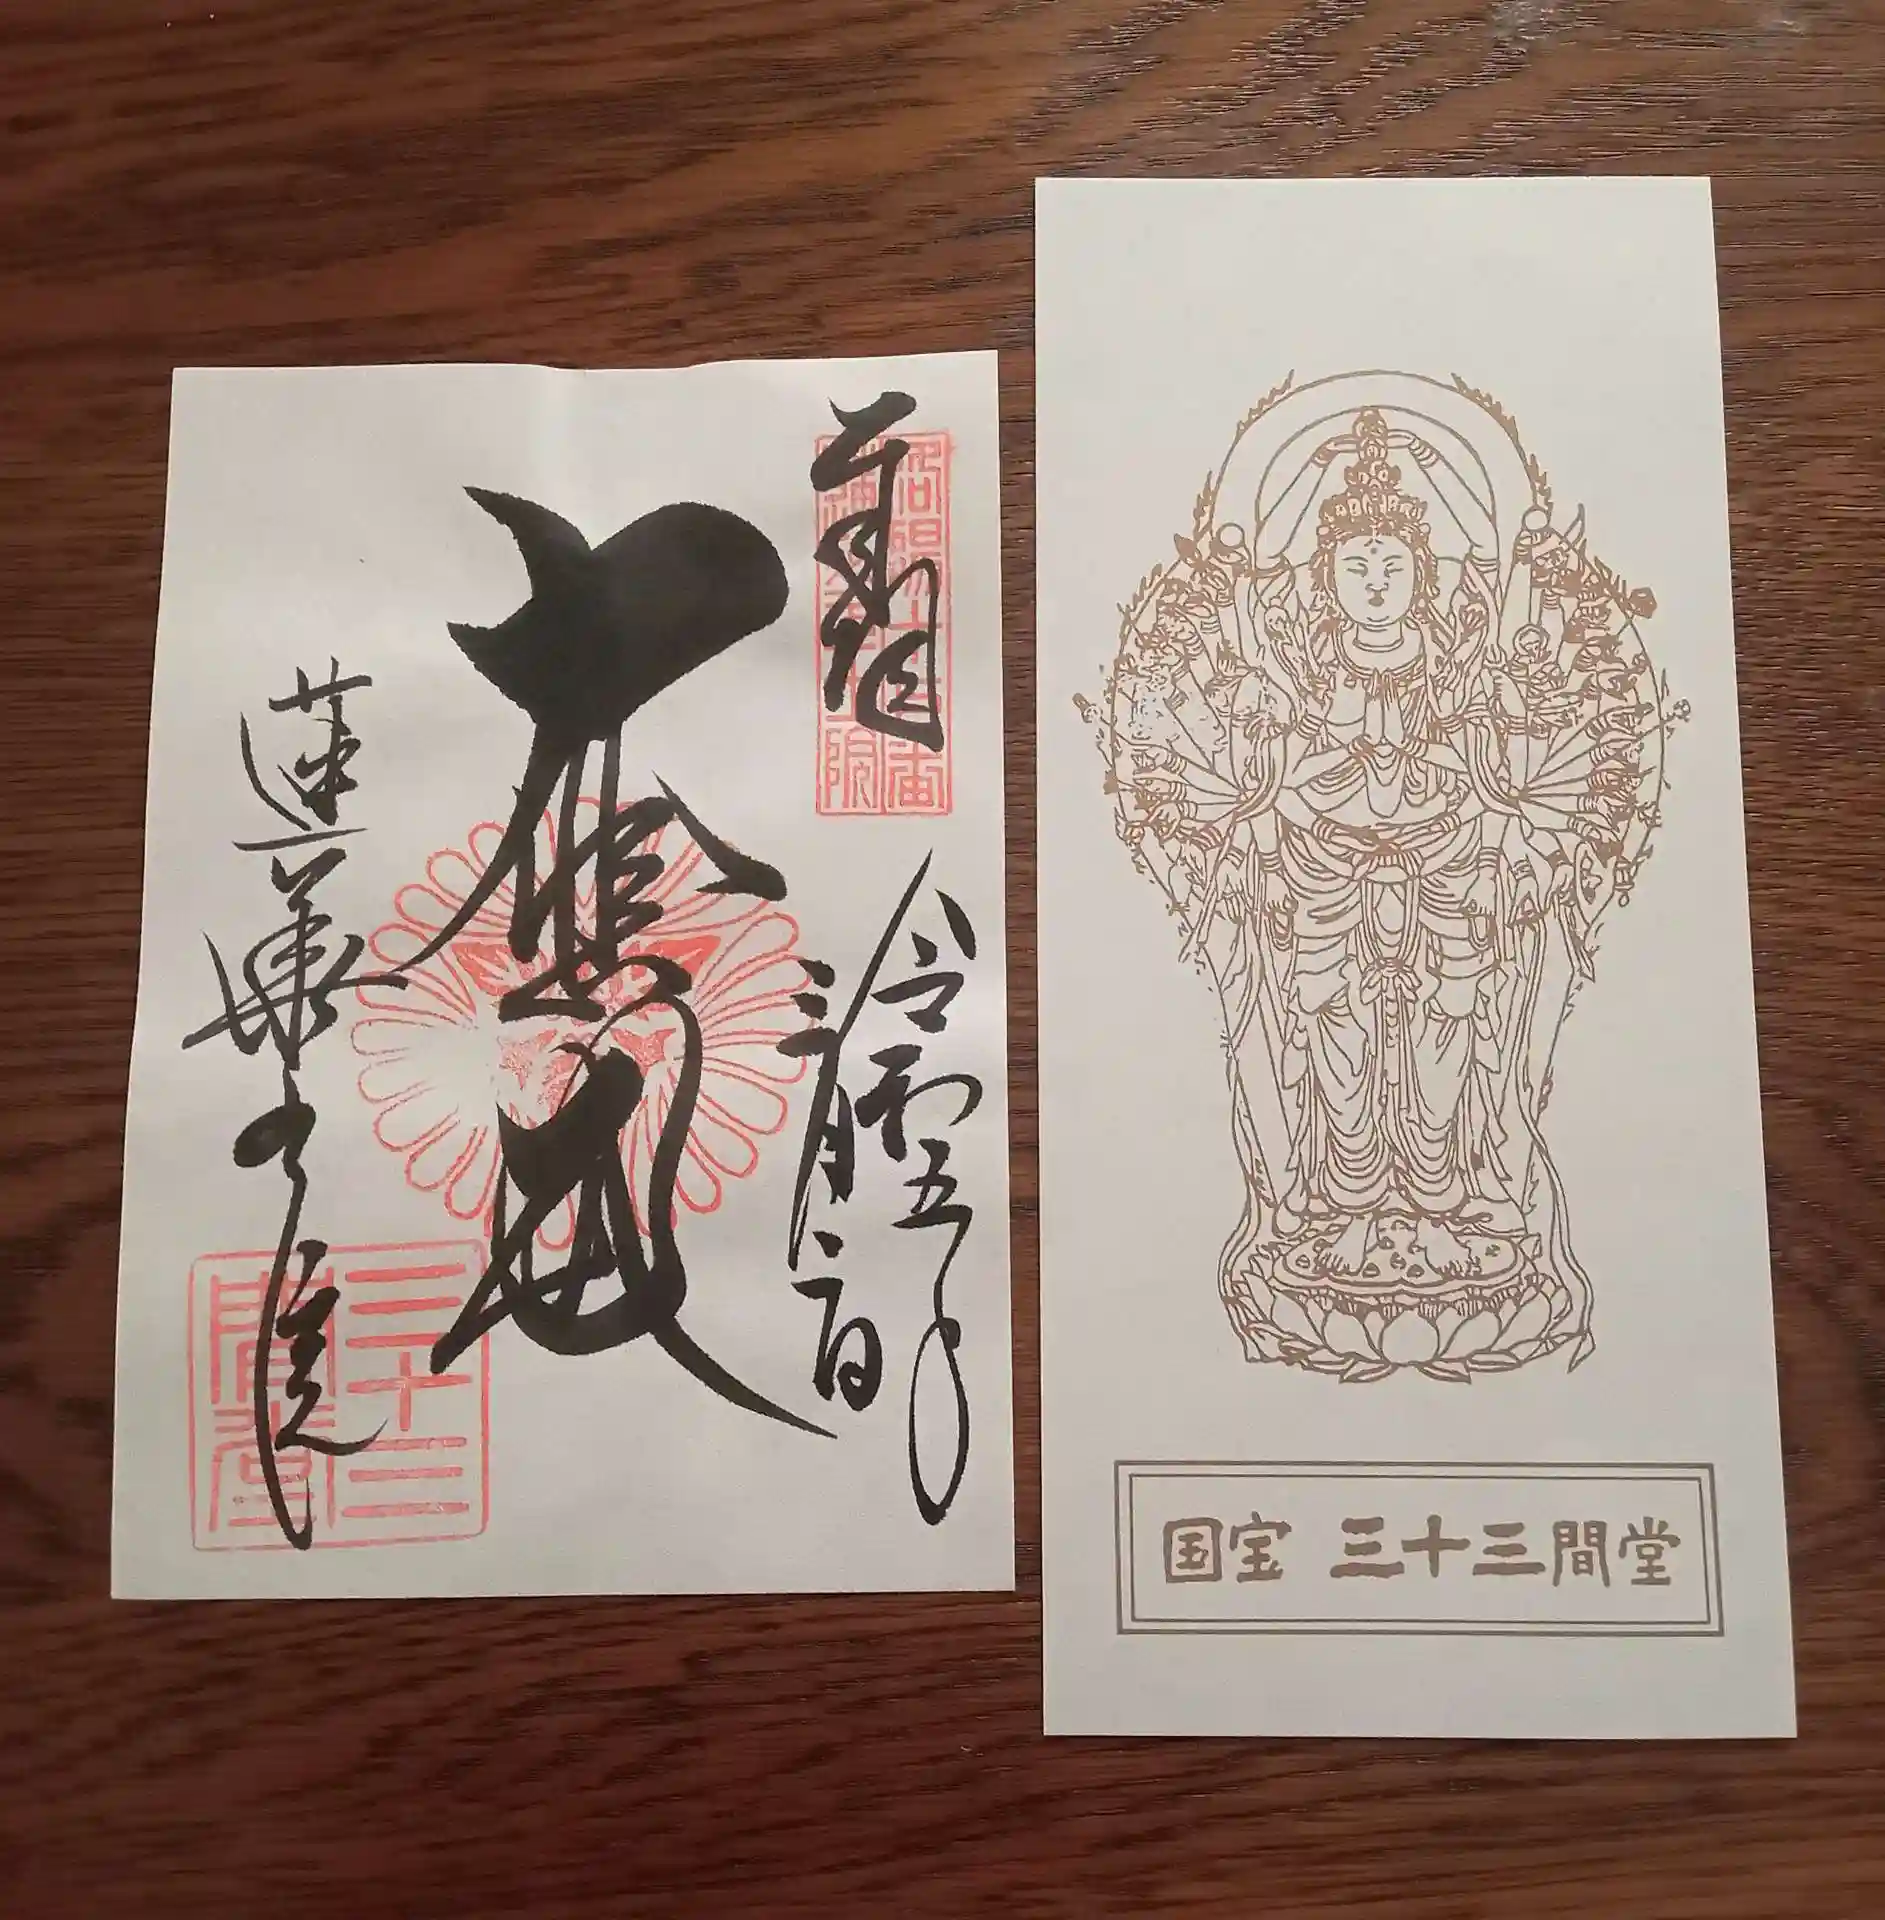 奉拝
令和五年
三月二日
大悲殿
蓮華王院
三十三
間堂
国宝 三十三間堂